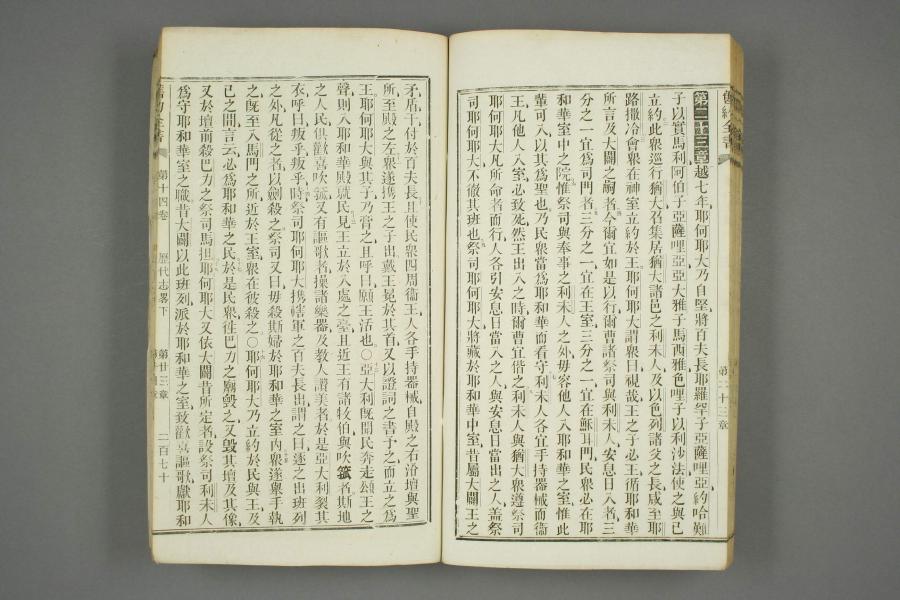 舊約全書
第二十三章
第二十三章越七年耶何耶大乃自堅將百夫長耶羅罕子亞薩哩亞約哈難
子以實馬利阿伯子亞薩哩亞亞大雅子馬西雅色哩子以利沙法使之與己
立約此眾巡行猶大召集居猶大諸邑之利未人及以色列諸父之長咸至耶
路撒冷會眾在神室立約於王耶何耶大謂眾曰視哉王之子必王循耶和華
所言及大闢之嗣者今爾宜如是以行爾曹諸祭司與利未人安息日入者三
分之一宜為司門者三分之一宜在王室三分之一宜在穌耳門民眾必在耶
和華室中之院惟祭司與奉事之利未人之外毋容他人入耶和華之室惟此
輩可入以其為聖也乃民眾當為耶和華而看守利未人各宜手持器械而衞
王凡他人入室必致死然王出入之時爾曹宜偕之利未人與猶大眾遵祭司
耶何耶大凡所命者而行人各引安息日當入之人與安息日當出之人蓋祭
司耶何耶大不徹其班也祭司耶何耶大將藏於耶和華中室昔屬大闢王之
矛盾干付於百夫長且使民眾四周衞王人各手持器械自殿之右沿壇與聖
所至殿之左眾遂携王之子出戴王冕於其首又以證詞之書予之而立之為
王耶何耶大與其子乃膏之且呼曰願王活也〇亞大利既聞民奔走頌王之
聲則入耶和華殿就民見王立於入處之臺且近王有諸牧伯與吹號者斯地
之人民俱歡喜吹號又有謳歌者操諸樂器及教人讚美者於是亞大利裂其
衣呼曰叛乎叛乎時祭司耶何耶大携轄軍之百夫長出謂之曰逐之出班列
之外凡從之者以劍殺之祭司又曰毋殺斯婦於耶和華之室內眾遂舉手執
之既至入馬門之所近於王室眾在彼殺之〇耶何耶大乃立約於民與王及
己之間言云必為耶和華之民於是民眾往巴力之廟毀之又毀其壇及其像
又於壇前殺巴力之祭司馬担耶何耶大又依大闢昔所定名設祭司利未人
為守耶和華室之職昔大闢以此班列派於耶和華之室致歡喜謳歌獻耶和
舊約全書
第十四卷
歷代志畧下
第廿三章
二百七十